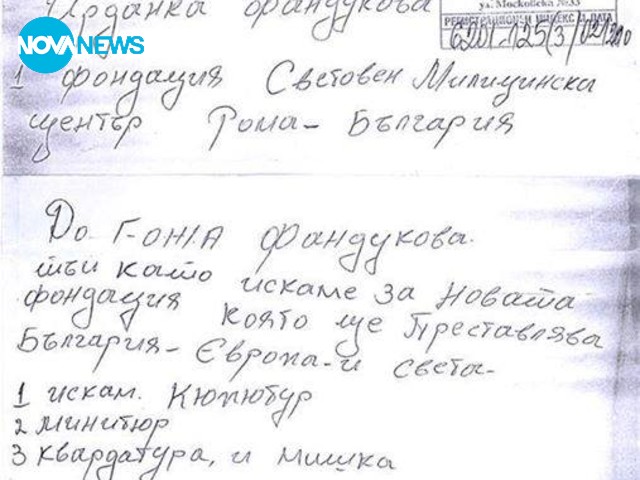 Йорданка Фандукова
ул. Московска №33
РЕГИСТРАЦИОНЕН ИНДЕКС И ДАТА
NOVA NEWS
1 фондация Световен Милицинска
център Рома - България
До Г-ОЖА Фандукова.
тъи като искаме за новата
фондация която ще Преставлява
България - Европа - и света -
1 искам. Кюпютур
2 минитюр
3 квардатура, и мишка